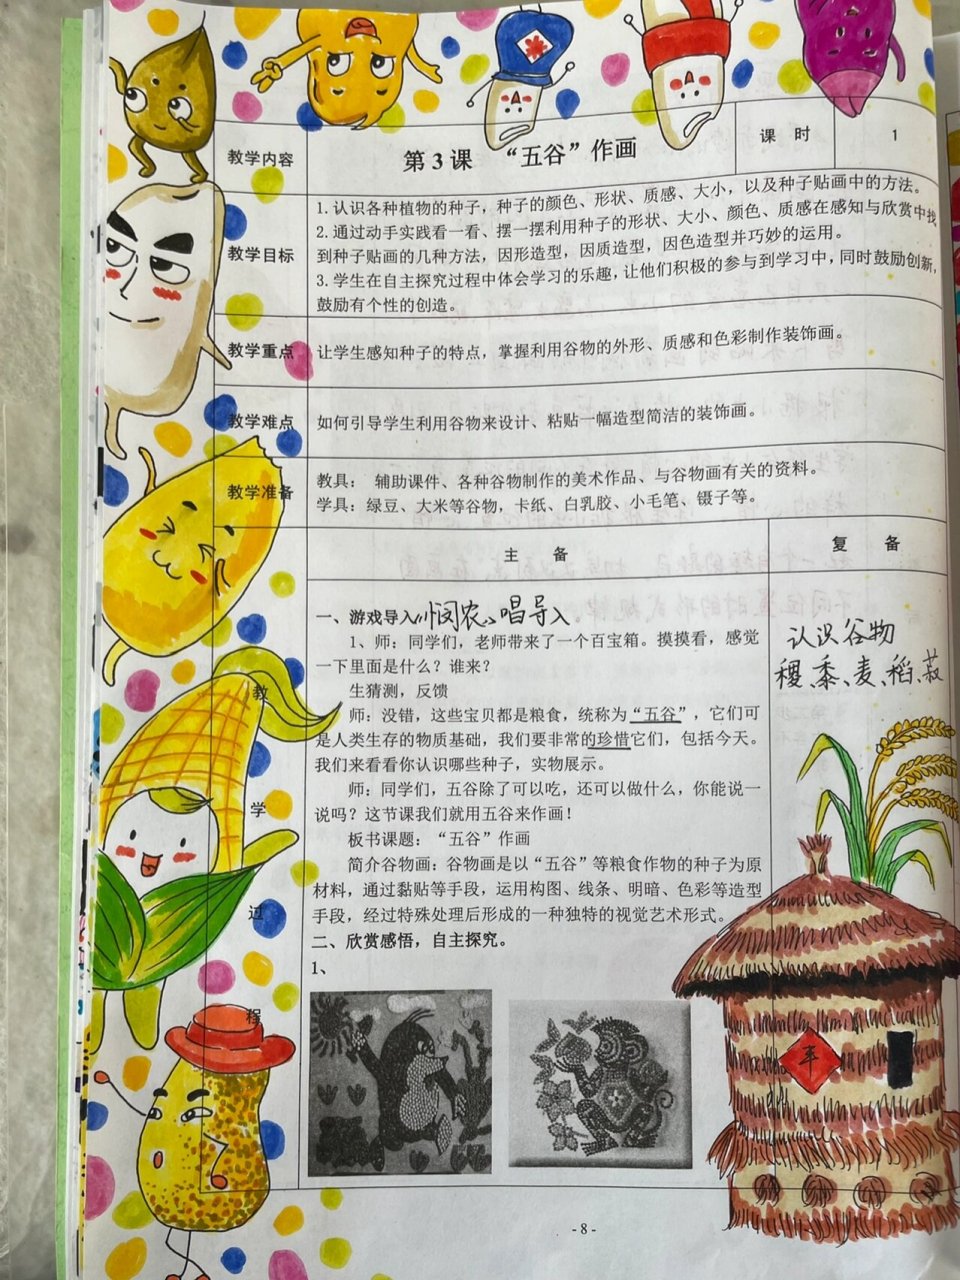 教学内容 第 3 课 “五谷”作画 课 时 1
教学目标
1.认识各种植物的种子，种子的颜色、形状、质感、大小，以及种子贴画中的方法。
2.通过动手实践看一看、摆一摆利用种子的形状、大小、颜色、质感在感知与欣赏中找
到种子贴画的几种方法，因形造型，因质造型，因色造型并巧妙的运用。
3.学生在自主探究过程中体会学习的乐趣，让他们积极的参与到学习中，同时鼓励创新，
鼓励有个性的创造。
教学重点 让学生感知种子的特点，掌握利用谷物的外形、质感和色彩制作装饰画。
教学难点 如何引导学生利用谷物来设计、粘贴一幅造型简洁的装饰画。
教学准备
教具： 辅助课件、各种谷物制作的美术作品、与谷物画有关的资料。
学具：绿豆、大米等谷物，卡纸、白乳胶、小毛笔、镊子等。
主 备
复 备
教
学
过
程
一、游戏导入《悯农》唱导入
1、师：同学们，老师带来了一个百宝箱。摸摸看，感觉
一下里面是什么？谁来？
生猜测，反馈
师：没错，这些宝贝都是粮食，统称为“五谷”，它们可
是人类生存的物质基础，我们要非常的珍惜它们，包括今天。
我们来看看你认识哪些种子，实物展示。
师：同学们，五谷除了可以吃，还可以做什么，你能说一
说吗？这节课我们就用五谷来作画！
板书课题：“五谷”作画
简介谷物画：谷物画是以“五谷”等粮食作物的种子为原
材料，通过黏贴等手段，运用构图、线条、明暗、色彩等造型
手段，经过特殊处理后形成的一种独特的视觉艺术形式。
二、欣赏感悟，自主探究。
1、
认识谷物
稷、黍、麦、稻、菽
丰
- 8 -